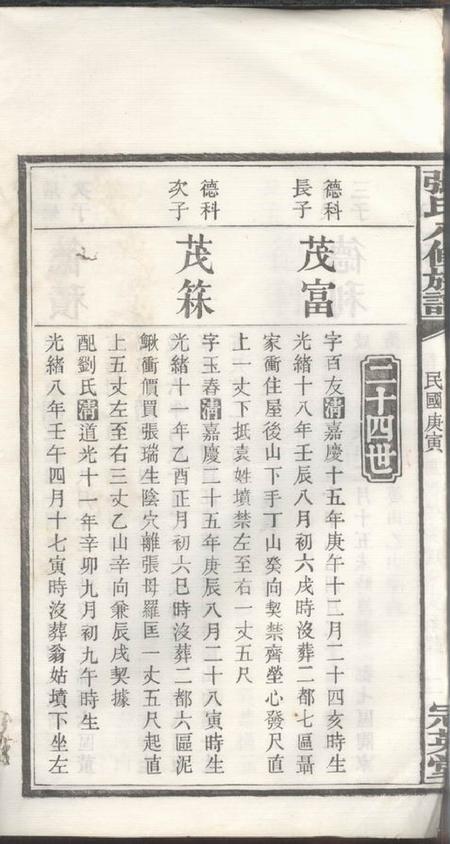 張氏八修族譜
民國庚寅
二十四世
德科
長子
茂富
字百友清嘉慶十五年庚午十二月二十四亥時生
光緒十八年壬辰八月初六戌時沒葬二都七區聶
家衝住屋後山下手丁山癸向契禁齊塋心發尺直
上一丈下抵袁姓墳禁左至右一丈五尺
德科
次子
茂箖
字玉春清嘉慶二十五年庚辰八月二十八寅時生
光緒十一年乙酉正月初六巳時沒葬二都六區泥
鰍衝價買張瑞生陰穴離張母羅匡一丈五尺起直
上五丈左至右三丈乙山辛向兼辰戌契據
配劉氏清道光十一年辛卯九月初九午時生
光緒八年壬午四月十七寅時沒葬翁姑墳下坐左